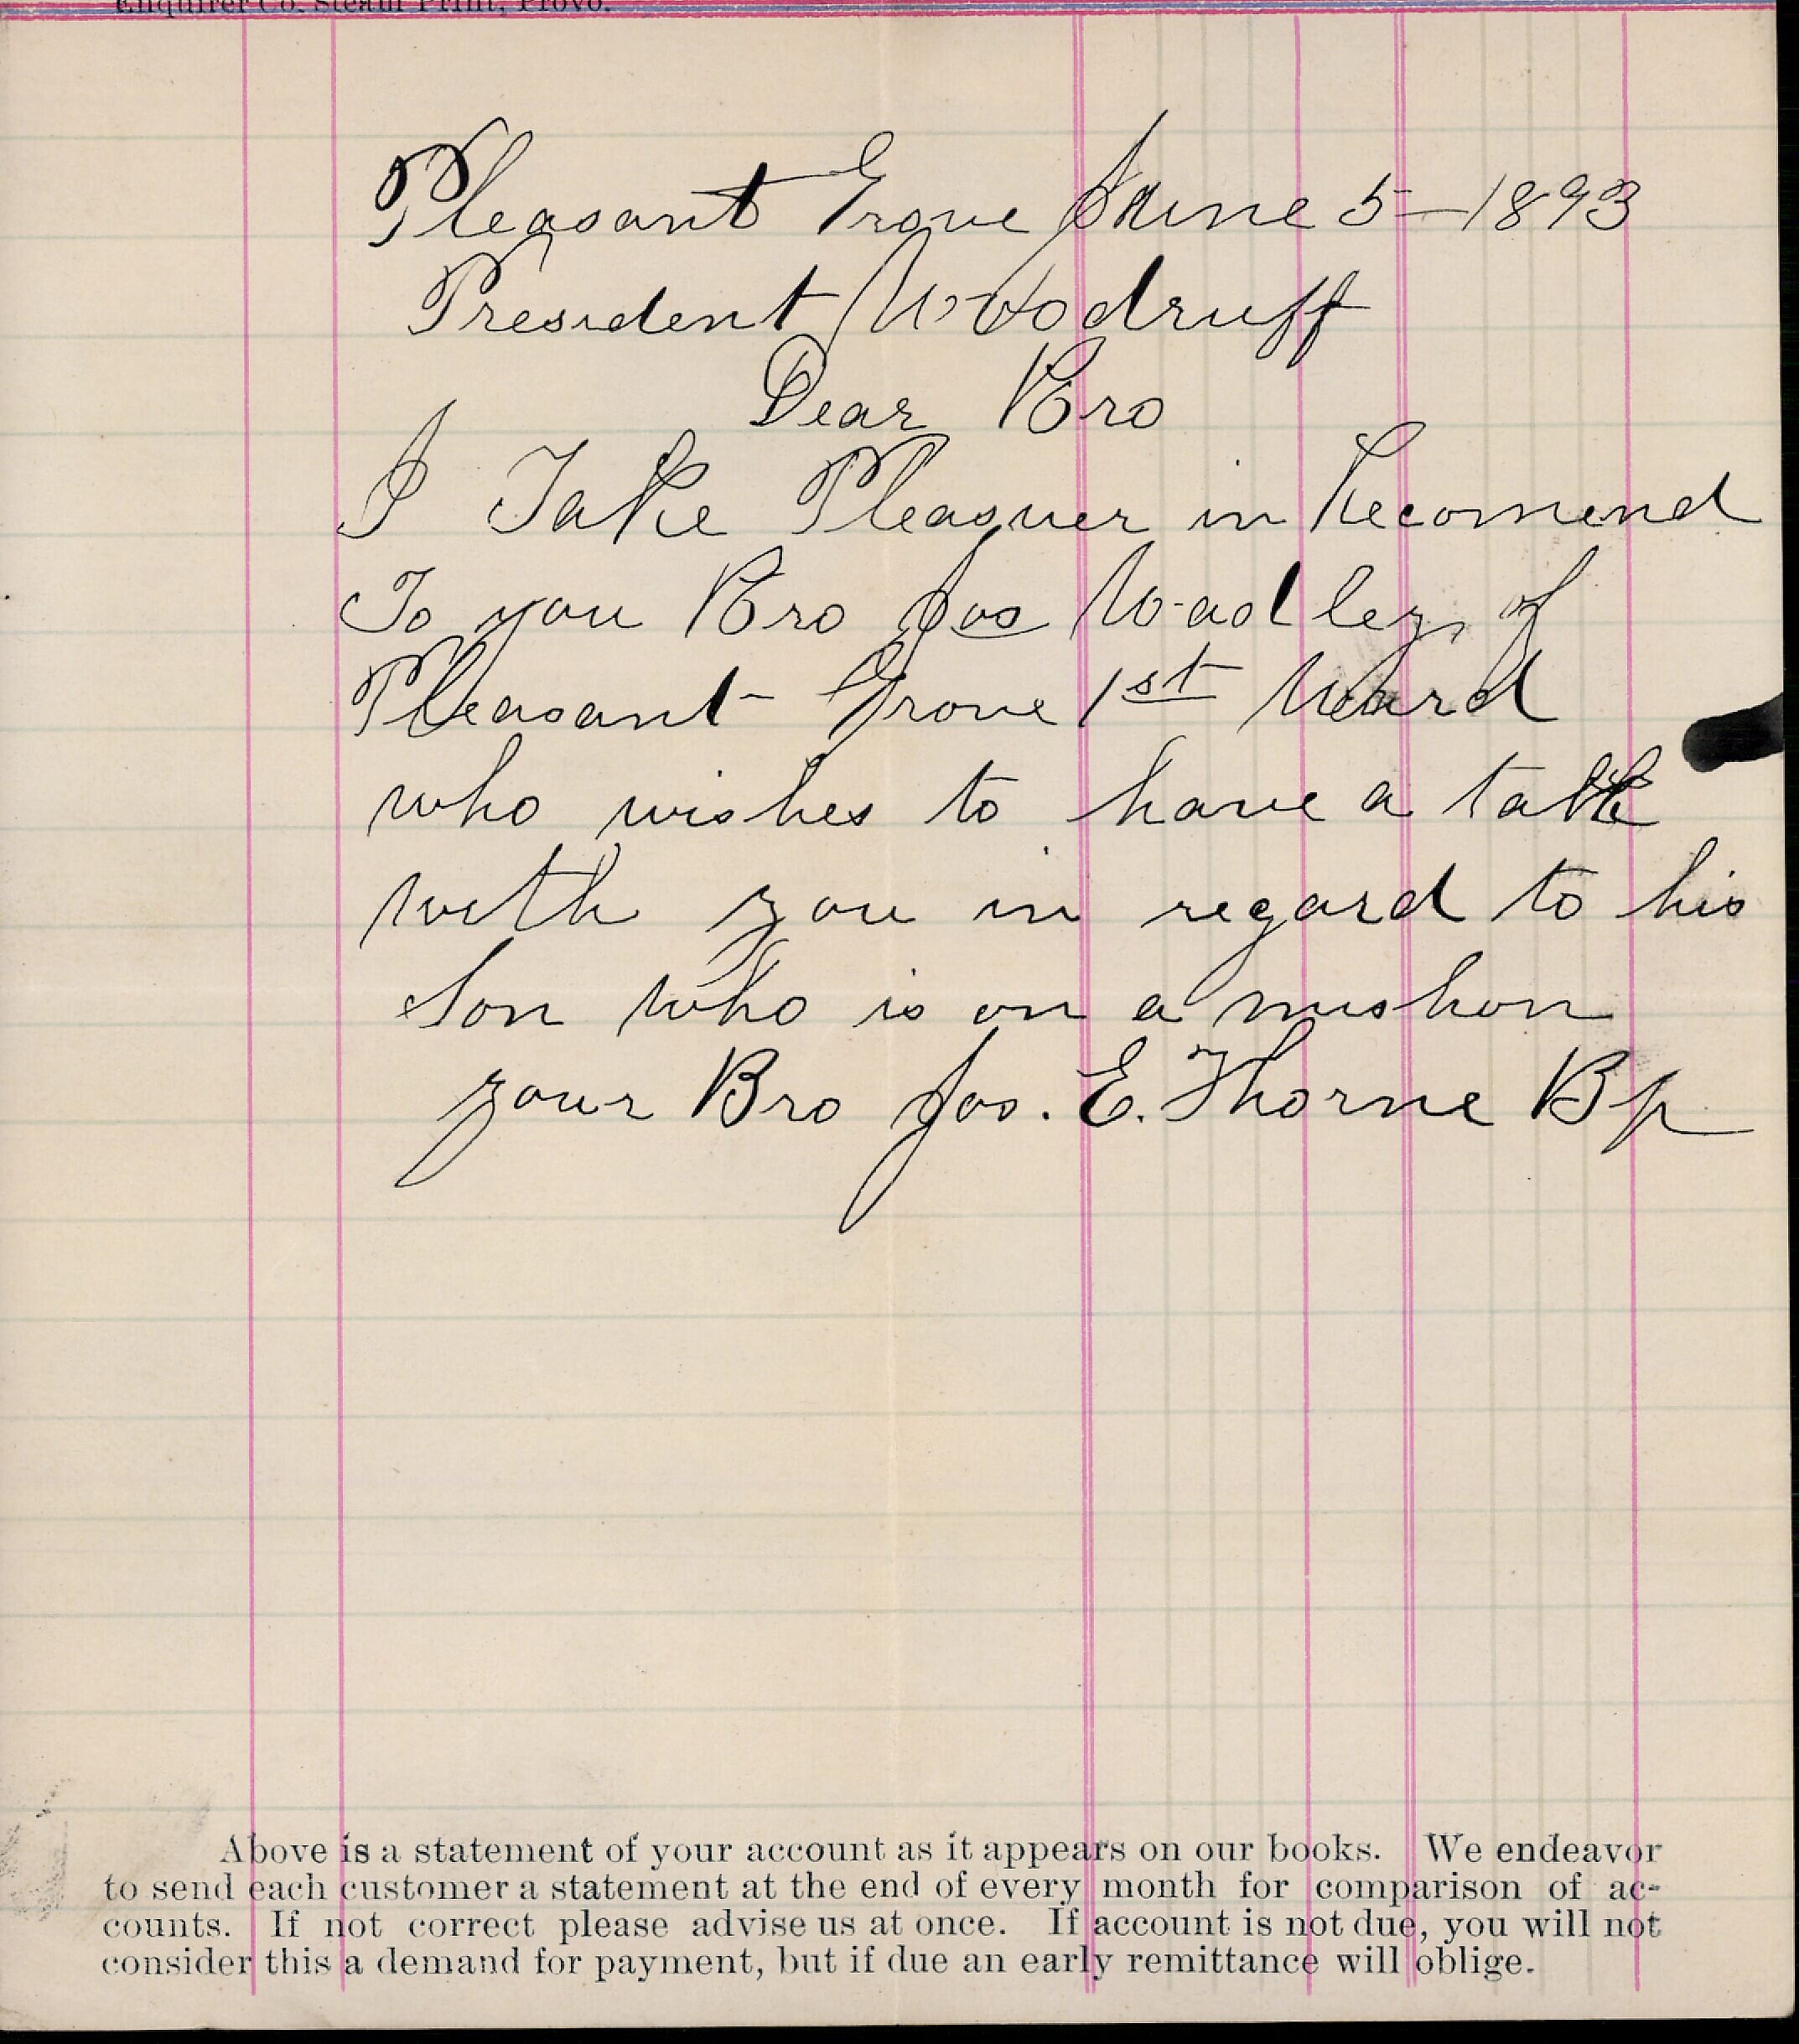 Enquirer Co. Steam Print, Provo.
Pleasant Grove June 5-1893
President Woodruff
Dear Bro
I Take Pleasuer in Recomend
To you Bro Jos Wadley of
Pleasant Grove 1st Ward
who wishes to have a talk
with you in regard to his
Son who is on a mishon
your Bro Jos. E. Thorne Bp
Above is a statement of your account as it appears on our books. We endeavor
to send each customer a statement at the end of every month for comparison of ac-
counts. If not correct please advise us at once. If account is not due, you will not
consider this a demand for payment, but if due an early remittance will oblige.